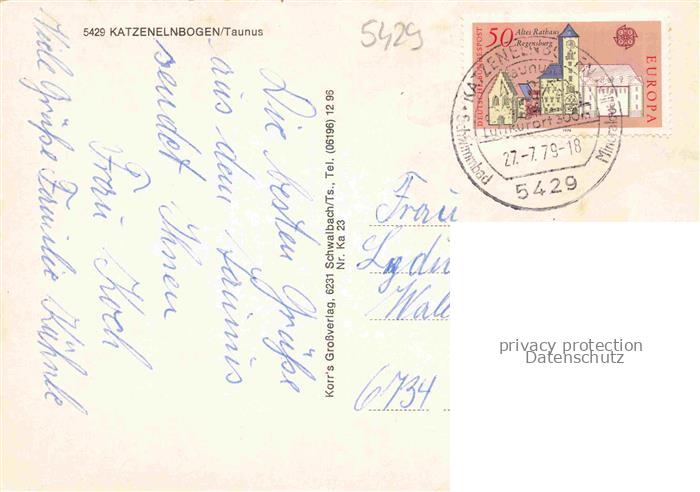 5429 KATZENELNBOGEN/Taunus
5429
50
Altes Rathaus
Regensburg
DEUTSCHE BUNDESPOST
EUROPA
KATZENELNBOGEN
Taunus
Luftkurort 300m
27.-7.79-18
Schwimmbad
5429
Die besten Grüße
aus dem Taunus
sendet Ihnen
Frau Koch
Viele Grüße Familie Kühnle
Korr's Großverlag, 6231 Schwalbach/Ts., Tel. (06196) 12 96
Nr. Ka 23
Frau
Lydi
Wal
6734
privacy protection
Datenschutz